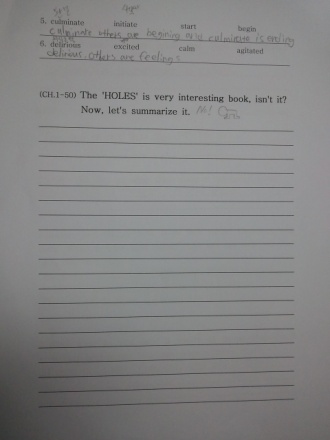 5. culminate initiate start begin
culminate others are begining and culminate is ending
6. delirious excited calm agitated
delirious. others are feeling.
(CH.1-50) The 'HOLES' is very interesting book, isn't it?
Now, let's summarize it.